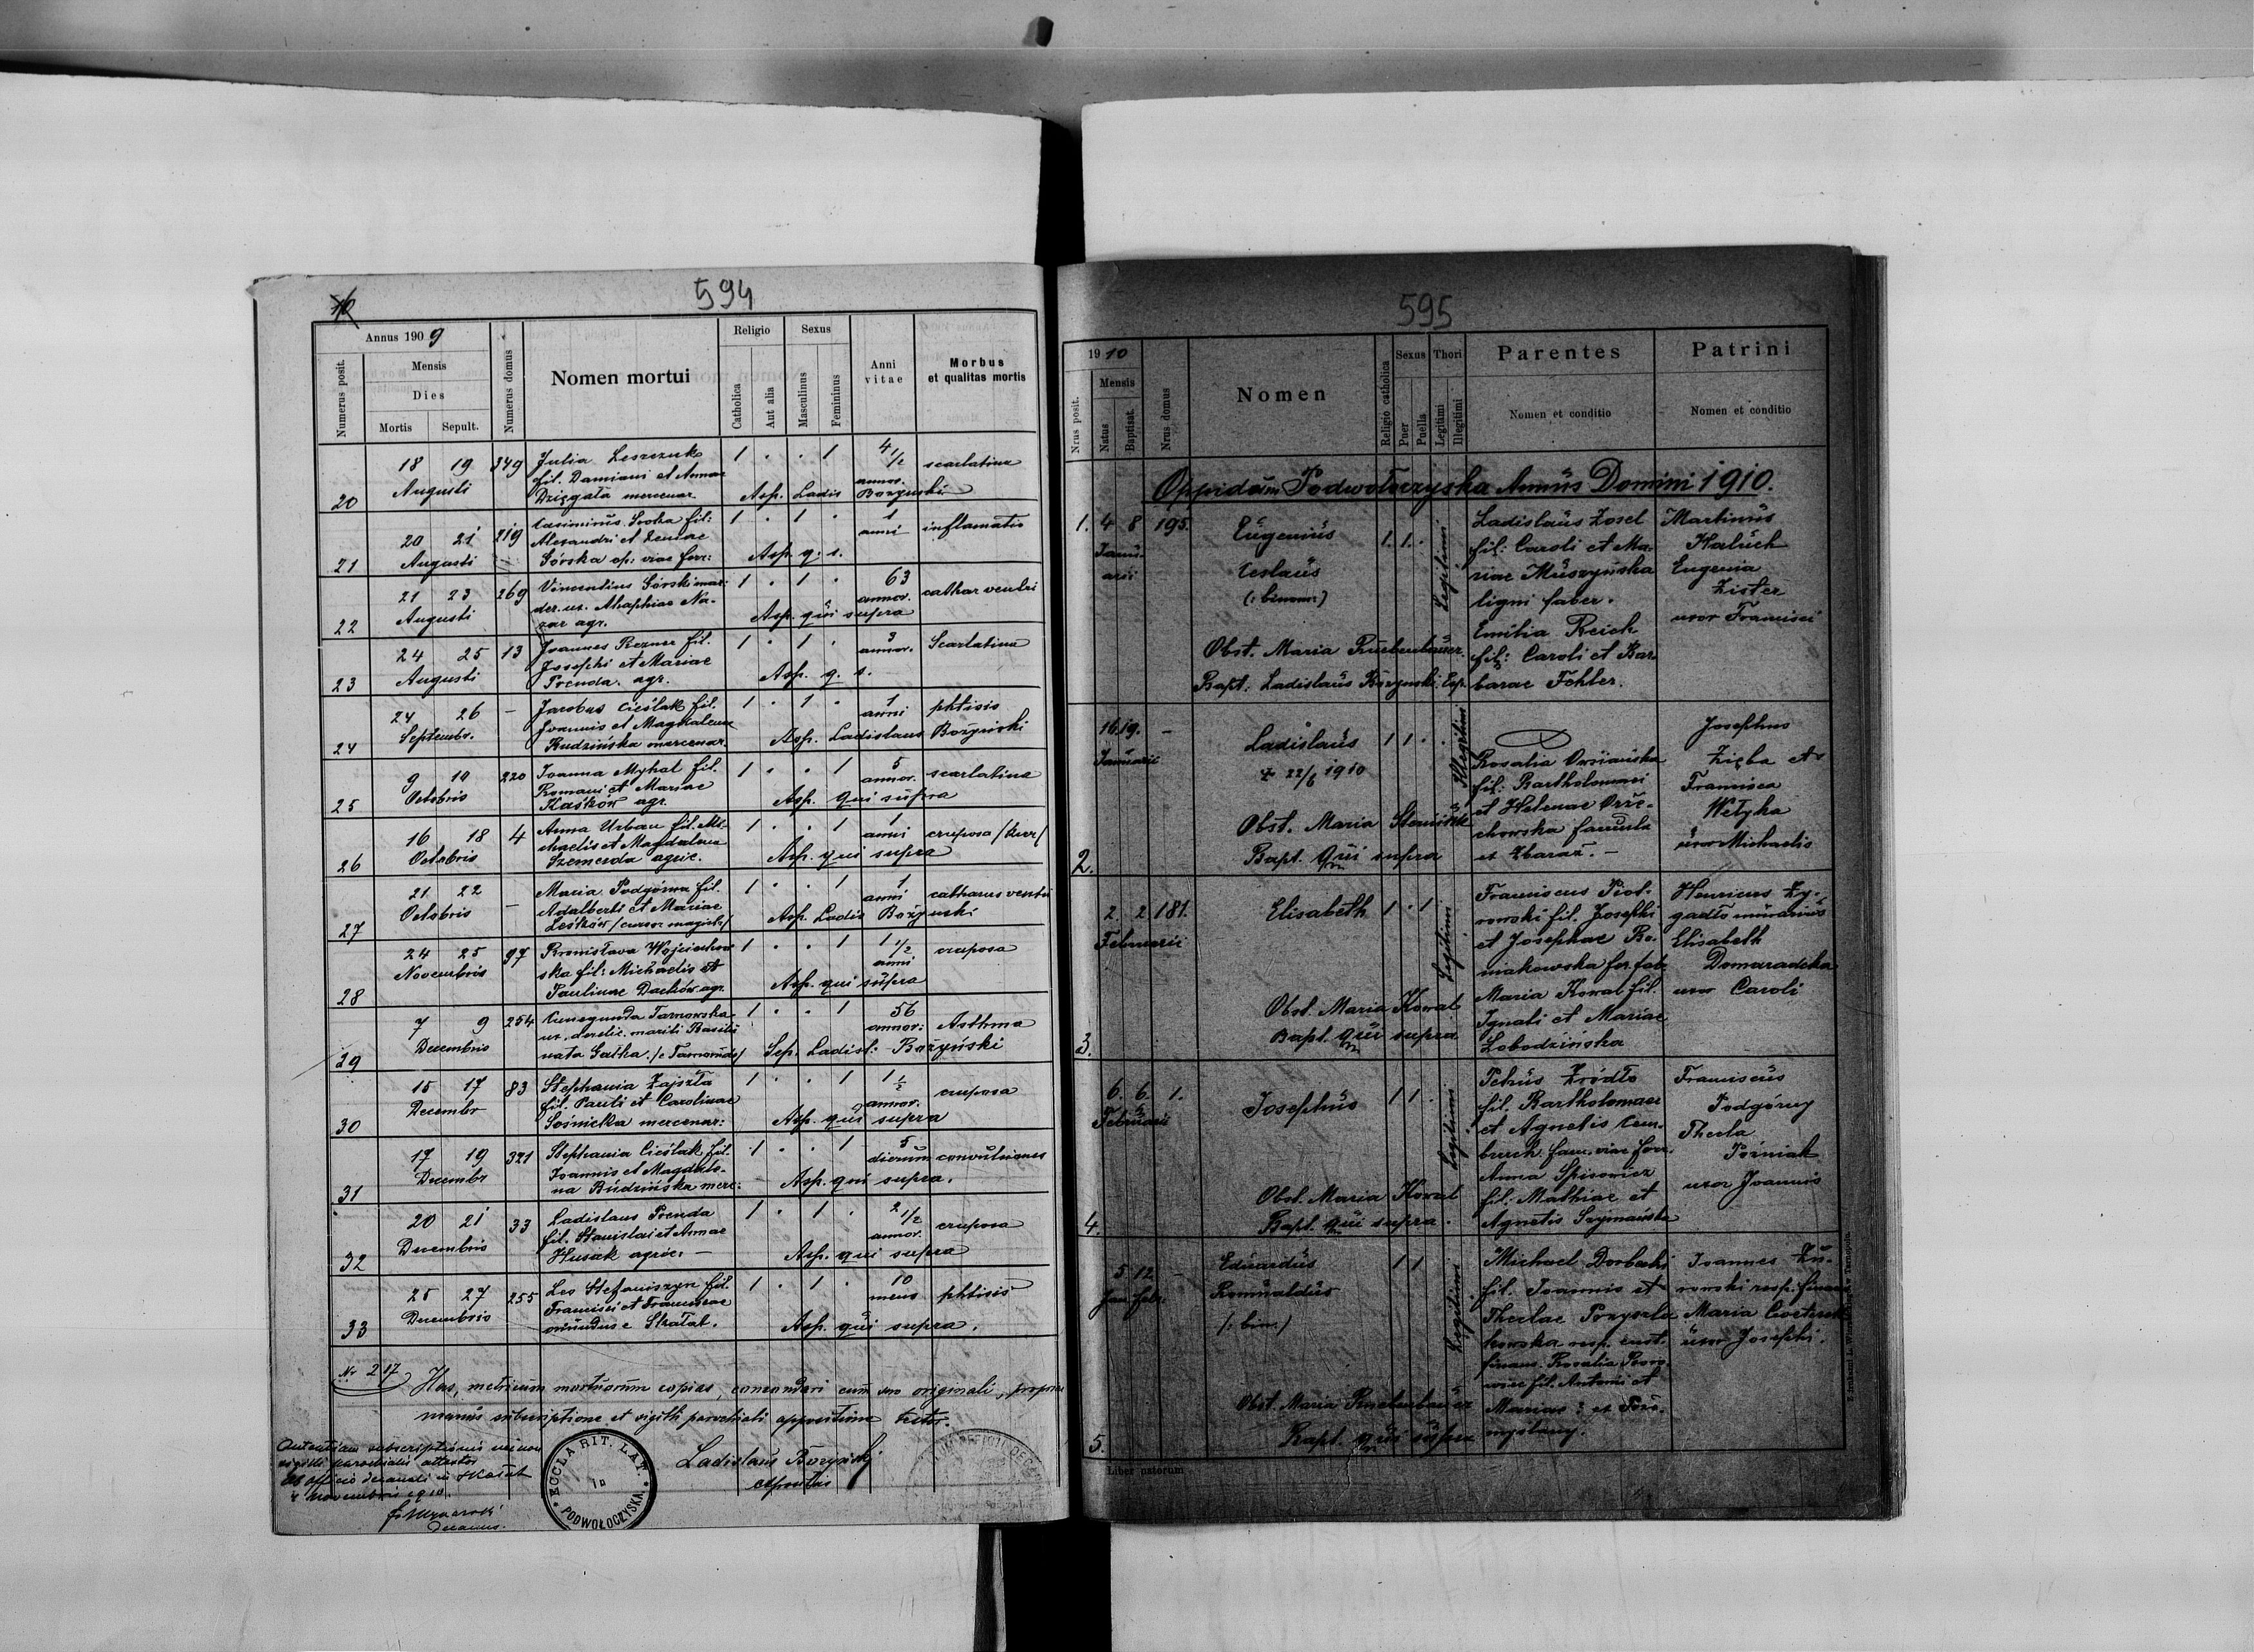 594
Annus 1909
Numerus posit.
Mensis
Dies
Mortis
Sepult.
Numerus domus
Nomen mortui
Religio
Catholica
Aut alia
Sexus
Masculinus
Femininus
Anni
vitae
Morbus
et qualitas mortis
20
18 19 349
Augusti
Julia Leszczuk
fil. Damiani et Annae
Dzięgała mercenar.
1 . . 1
4 1/2
annor.
scarlatina
Asp. Ladis Bożyński
21
20 21 219
Augusti
Casimirus Sroka fil:
Alexandri et Zeniae
Górska op: viae ferr:
1 . 1 .
1
anni
inflamatio
Asp. q. s.
22
21 23 269
Augusti
Vincentius Górski mar:
der. ux. Ahaphiae Na-
zar agr.
1 . 1 .
63
annor.
cathar ventri
Asp. qui supra
23
24 25 13
Augusti
Joannes Rezner fil.
Josephi et Mariae
Prenda. agr.
1 . 1 .
3
annor.
Scarlatina
Asp. q. s.
24
24 26 –
Septembr.
Jacobus Cieślak fil.
Joannis et Magdalenae
Rudzińska mercenar.
1 . 1 .
1
anni
phtisis
Asp. Ladislaus Bożyński
25
9 10 220
Octobris
Joanna Myhal fil.
Romani et Mariae
Kaśków agr.
1 . . 1
5
annor.
scarlatina
Asp. qui supra
26
16 18 4
Octobris
Anna Urban fil. Mi-
chaelis et Magdalena
Szemerda agric.
1 . . 1
1
anni
cruposa
Asp. qui supra
27
21 22 –
Octobris
Maria Podgórna fil.
Adalberti et Mariae
Leśków /cursor magist./
1 . . 1
1
anni
catharus ventri
Asp. Ladis Bożyński
28
24 25 97
Novembris
Bronisława Wojciechow
ska fil: Michaelis et
Paulinae Dachów agr.
1 . . 1
1 1/2
anni
cruposa
Asp. qui supra
29
7 9 254
Decembris
Cunegunda Tarnowska
ux. derelic. mariti Basilii
nata Gałka
1 . . 1
56
annor:
Asthma
Sep. Ladisl: Bożyński
30
15 17 83
Decembr
Stephania Zajszła
fil. Pauli et Carolinae
Sośnicka mercenar:
1 . . 1
1 1/2
annor.
cruposa
Asp. qui supra
31
17 19 321
Decembr
Stephania Cieślak fil.
Joannis et Magdale-
na Budzińska merc:
1 . . 1
5
dierum
convulsiones
Asp. qui supra.
32
20 21 33
Decembris
Ladislaus Prenda
fil. Stanislai et Annae
Husak agric. –
1 . 1 .
2 1/2
annor.
cruposa
Asp. qui supra
33
25 27 255
Decembris
Leo Stefaniszyn fil.
Francisci et Franciscae
oriundus e Skałat.
1 . 1 .
10
mens
phtisis
Asp. qui supra.
Nr 217
Has, metricum mortuorum copias, concordari cum suo originali, propriae
manus subscriptione et sigilli parochiali appositione testor.
Ladislaus Bożyński
expositus
sigilli parochialis attestor
Ab officio decanali in Skałat
novembris 1910.
Decanus.
ECCLA RIT. LAT.
in
PODWOŁOCZYSKA
595
1910
Nrus posit.
Mensis
Natus
Baptisat.
Nrus domus
Nomen
Religio catholica
Sexus
Puer
Puella
Thori
Legitimi
Illegitimi
Parentes
Nomen et conditio
Patrini
Nomen et conditio
Oppidum Podwołoczyska Annus Domini 1910.
1. 4 8 195.
Janu-
arii
Eugenius
Ceslaus
(: binom:)
1. 1. .
Legitimi
Obst. Maria Ruebenbauer.
Bapt. Ladislaus Bożynski. Exp.
Ladislaus Zosel
fil: Caroli et Ma-
riae Muszyńska
ligni faber.
Emilia Reich
fil: Caroli et Bar-
barae Fehler.
Martinus
Haluch
Eugenia
Zister
uxor Francisci
2.
16 19. –
Januarii
Ladislaus
22/6 1910
1 1 . .
Illegitim
Obst. Maria
Bapt. qui supra
Rosalia Owsiańska
fil: Bartholomaei
et Helenae Orze-
chowska famula
ex Zbaraż. –
Josephus
Zięba et
Francisca
Wełyka
uxor Michaelis
3.
2. 2 181.
Februarii
Elisabeth
1 . 1
Legitimi
Obst. Maria Kowal
Bapt. qui supra
Franciscus Piot-
rowski fil. Josephi
et Josephae Bo-
niakowska fer. fab.
Maria Kowal fil.
Ignati et Mariae
Łobodzińska
Henricus Zy-
gadło murarius
Elisabeth
Domaradzka
uxor Caroli
4.
6. 6. 1.
Februarii
Josephus
1 1 .
Legitimi
Obst. Maria Kowal
Bapt. qui supra.
Petrus Źródło
fil. Bartholomaei
et Agnetis Cem-
bruch fam. viae ferr.
Anna Spisowicz
fil. Mathiae et
Agnetis Szymańska
Franciscus
Podgórny
Thecla
Poźniak
uxor Joannis
5.
5 12 –
Jan. Febr.
Eduardus
Romualdus
(: bin:)
1 1
Legitimi
Obst. Maria Ruebenbauer
Bapt. qui supra
Michael Dorbacki
fil. Joannis et
Theclae Przyszla
kowska resp. cust.
financ. Rosalia
fil. Antonii et
Mariae
Joannes Żu-
rowski resp. financ
Maria
uxor Josephi.
Liber natorum